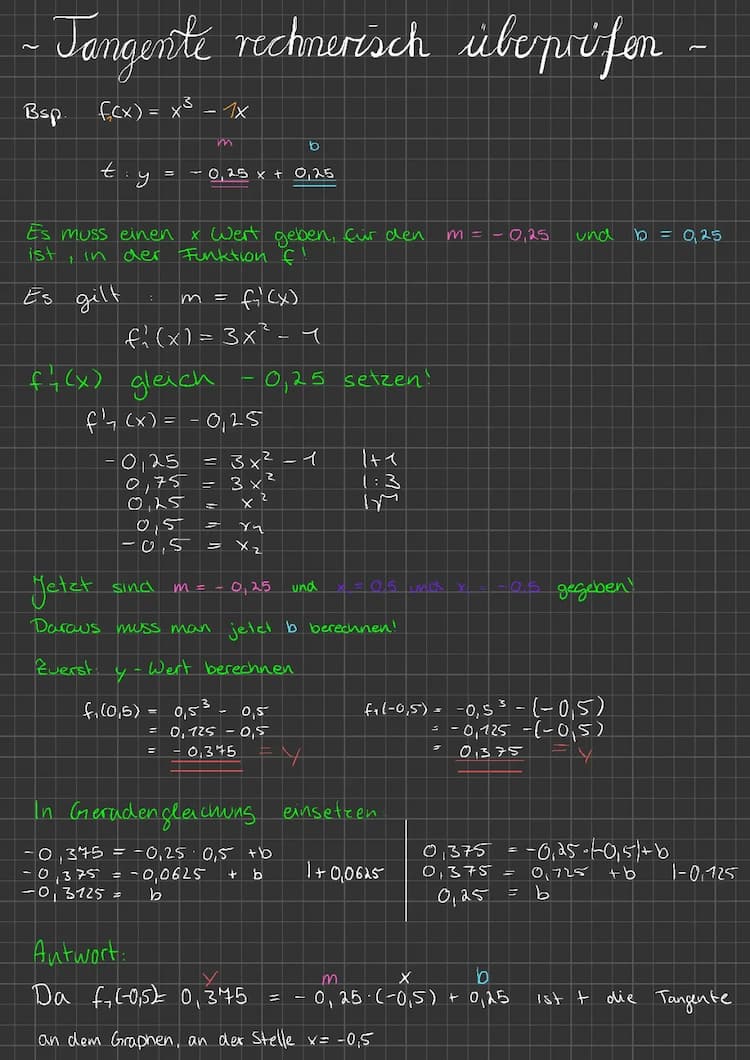 ~ Tangente rechnerisch überprüfen ~
Bsp. f₁(x) = x³ - 1x
m b
t : y = - 0,25 x + 0,25
Es muss einen x Wert geben, für den m = - 0,25 und b = 0,25
ist, in der Funktion f!
Es gilt : m = f₁'(x)
f₁'(x) = 3x² - 1
f'₁(x) gleich - 0,25 setzen!
f'₁(x) = - 0,25
-0,25 = 3x² - 1 |+1
0,75 = 3x² |:3
0,25 = x² |√
0,5 = x₁
-0,5 = x₂
Jetzt sind m = - 0,25 und x = 0,5 und x = -0,5 gegeben!
Daraus muss man jetzt b berechnen!
Zuerst: y - Wert berechnen
f₁(0,5) = 0,5³ - 0,5
= 0,125 - 0,5
= - 0,375 = y
f₁(-0,5) = -0,5³ - (-0,5)
= -0,125 -(-0,5)
= 0,375 = y
In Geradengleichung einsetzen:
-0,375 = -0,25 · 0,5 + b
-0,375 = -0,0625 + b |+0,0625
-0,3125 = b
0,375 = -0,25·(-0,5)+b
0,375 = 0,125 +b |-0,125
0,25 = b
Antwort:
y m x b
Da f₁(-0,5)= 0,375 = - 0,25·(-0,5) + 0,25 ist t die Tangente
an dem Graphen, an der Stelle x= -0,5